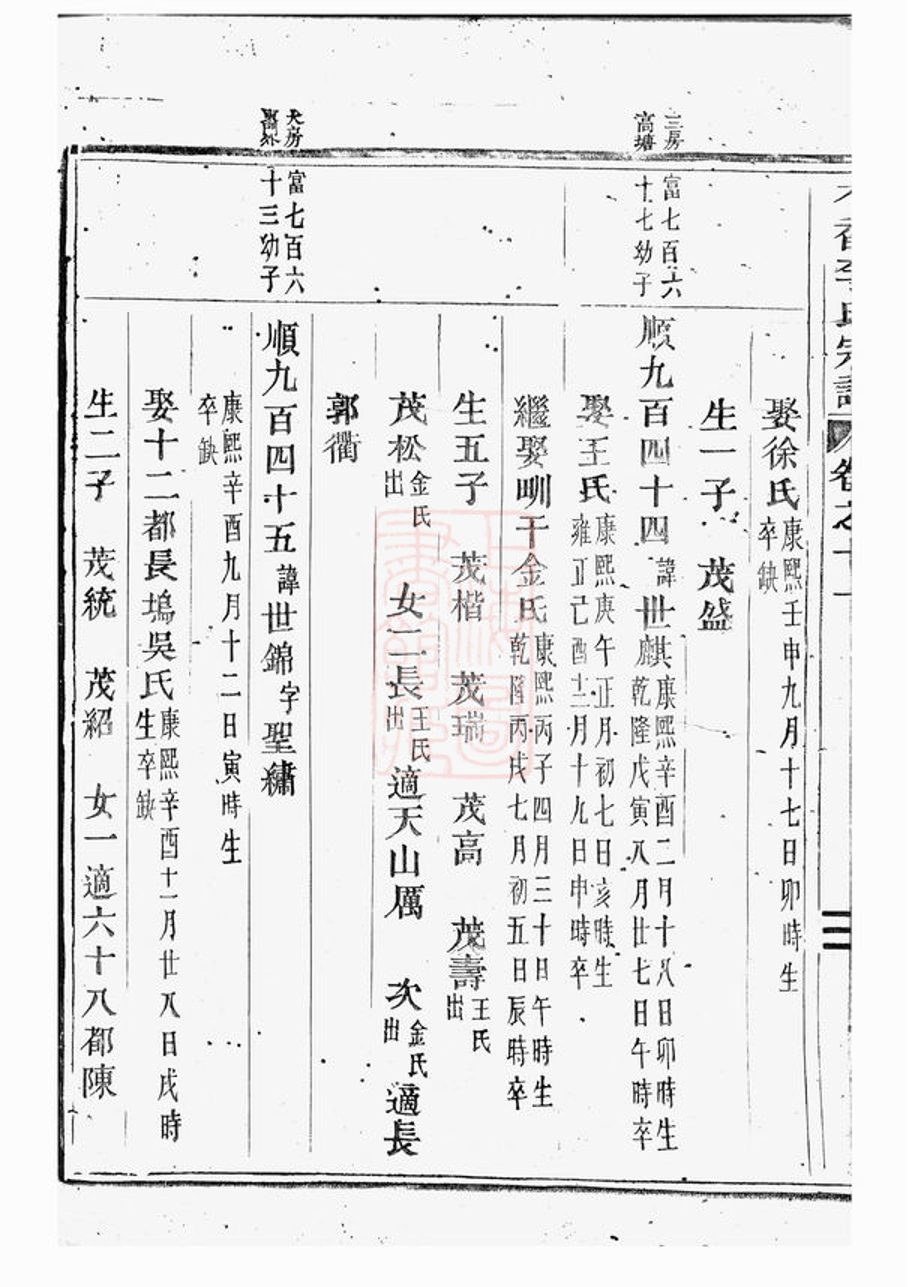 李氏宗譜 卷之十一
三
娶徐氏康熙壬申九月十七日卯時生
卒缺
生一子 茂盛
三房
高塘
富七百六
十七幼子
順九百四十四諱世麒康熙辛酉二月十八日卯時生
乾隆戊寅八月廿七日午時卒
娶王氏康熙庚午正月初七日亥時生
雍正己酉十二月十九日申時卒
繼娶甽干金氏康熙丙子四月三十日午時生
乾隆丙戌七月初五日辰時卒
生五子 茂楷 茂瑞 茂高 茂壽王氏
出
茂松金氏
出 女二長王氏
出適天山厲 次金氏
出適長
郭衢
大房
富七百六
十三幼子
順九百四十五諱世錦字聖繡
康熙辛酉九月十二日寅時生
卒缺
娶十二都長塢吳氏康熙辛酉十一月廿八日戌時
生卒缺
生二子 茂統 茂紹 女一適六十八都陳